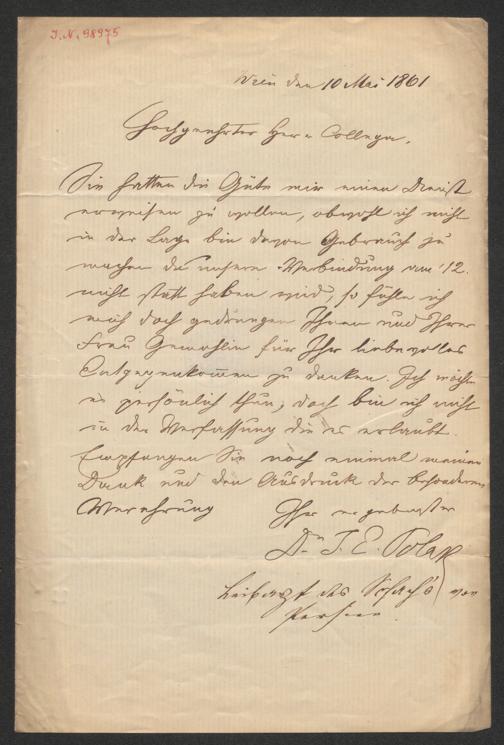 I.N. 98975
Wien den 10 Mai 1861
Hochgeehrter Herr Collega,
Sie hatten die Güte mir einen Dienst
erweisen zu wollen, obwohl ich nicht
in der Lage bin davon Gebrauch zu
machen da unsere Verbindung am 12.
nicht statt haben wird, so fühle ich
mich doch gedrungen Ihnen und Ihrer
Frau Gemahlin für Ihr liebevolles
Entgegenkommen zu danken. Ich möchte
es persönlich thun, doch bin ich nicht
in der Verfassung die es erlaubt.
Empfangen Sie noch einmal meinen
Dank und den Ausdruck der besonderen
Verehrung Ihr ergebenster
Dr. J. E. Polak
Leibarzt des Schach's von
Persien.